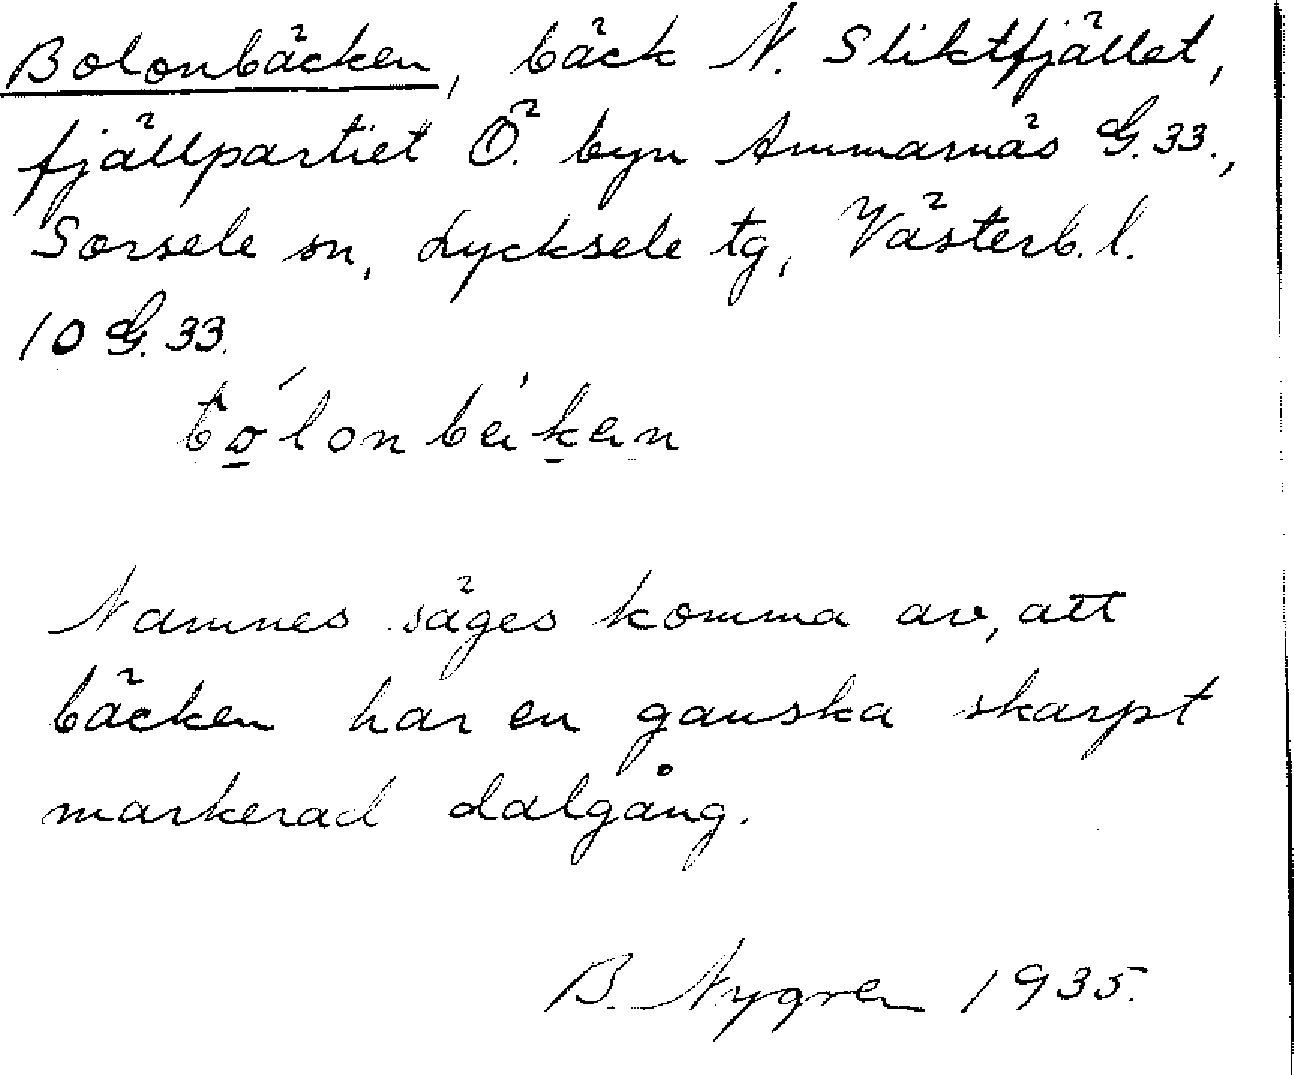 Bolonbäcken, bäck N. Sliktfjället,
fjällpartiet Ö. byn Ammarnäs G.33.,
Sorsele sn, Lycksele tg, Västerb. l.
10 G.33.
Namnes säges komma av, att
bäcken har en ganska skarpt
markerad dalgång.
B. Nygren 1935.